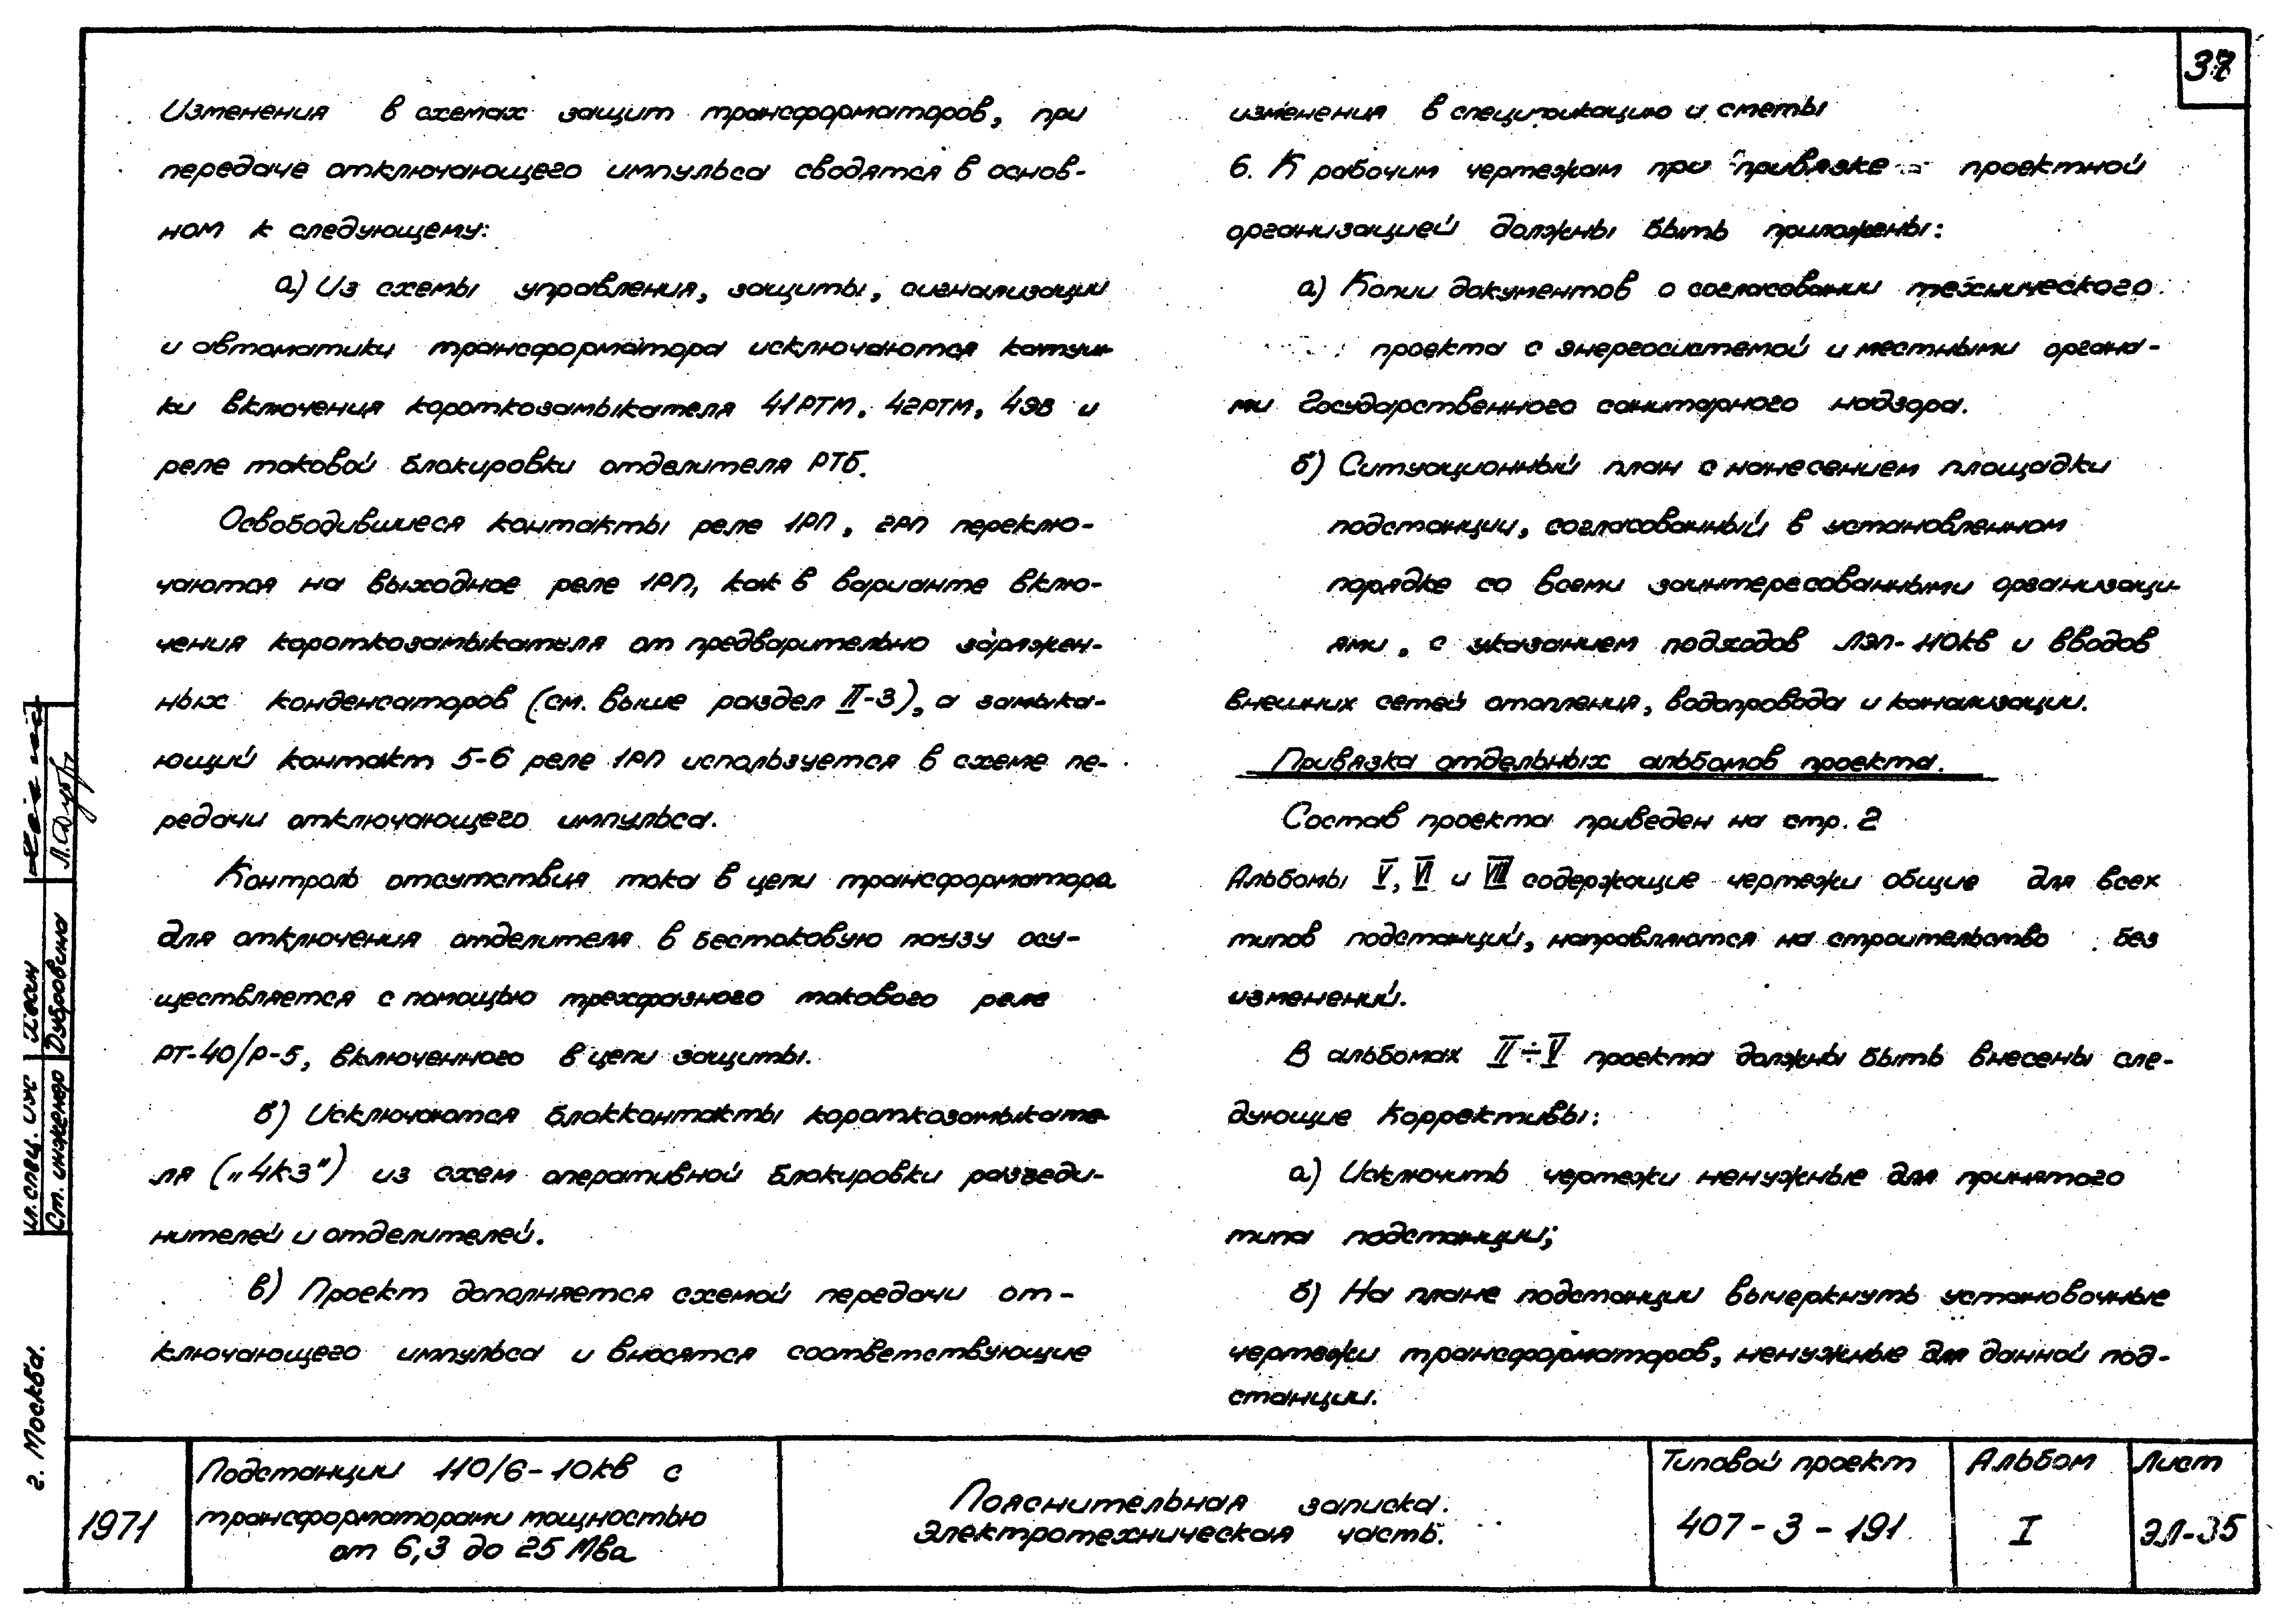 37
Изменения в схемах защит трансформаторов, при
передаче отключающего импульса сводятся в основ-
ном к следующему:
а) Из схемы управления, защиты, сигнализации
и автоматики трансформатора исключаются катуш-
ки включения короткозамыкателя 41РТМ, 42РТМ, 4ЭВ и
реле токовой блокировки отделителя РТБ.
Освободившиеся контакты реле 1РП, 2РП переклю-
чаются на выходное реле 1РП, как в варианте вклю-
чения короткозамыкателя от предварительно заряжен-
ных конденсаторов (см. выше раздел II-3), а замыка-
ющий контакт 5-6 реле 1РП используется в схеме пе-
редачи отключающего импульса.
Контроль отсутствия тока в цепи трансформатора
для отключения отделителя в бестоковую паузу осу-
ществляется с помощью трехфазного токового реле
РТ-40/Р-5, включенного в цепи защиты.
б) Исключаются блокконтакты короткозамыкате-
ля („4КЗ") из схем оперативной блокировки разъеди-
нителей и отделителей.
в) Проект дополняется схемой передачи от-
ключающего импульса и вносятся соответствующие
изменения в спецификацию и сметы
6. К рабочим чертежам при привязке проектной
организацией должны быть приложены:
а) Копии документов о согласовании технического
проекта с энергосистемой и местными органа-
ми Государственного санитарного надзора.
б) Ситуационный план с нанесением площадки
подстанции, согласованный в установленном
порядке со всеми заинтересованными организаци-
ями, с указанием подходов ЛЭП-110кв и вводов
внешних сетей отопления, водопровода и канализации.
Привязка отдельных альбомов проекта.
Состав проекта приведен на стр. 2
Альбомы V, VI и VIII содержащие чертежи общие для всех
типов подстанций, направляются на строительство без
изменений.
В альбомах II÷V проекта должны быть внесены сле-
дующие коррективы:
а) Исключить чертежи ненужные для принятого
типа подстанции;
б) На плане подстанции вычеркнуть установочные
чертежи трансформаторов, ненужные для данной под-
станции.
Ст. инженер Дубровина
г. Москва.
1971
Подстанции 110/6-10кв с
трансформаторами мощностью
от 6,3 до 25 Мва
Пояснительная записка.
Электротехническая часть.
Типовой проект
407-3-191
Альбом
I
Лист
ЭЛ-35